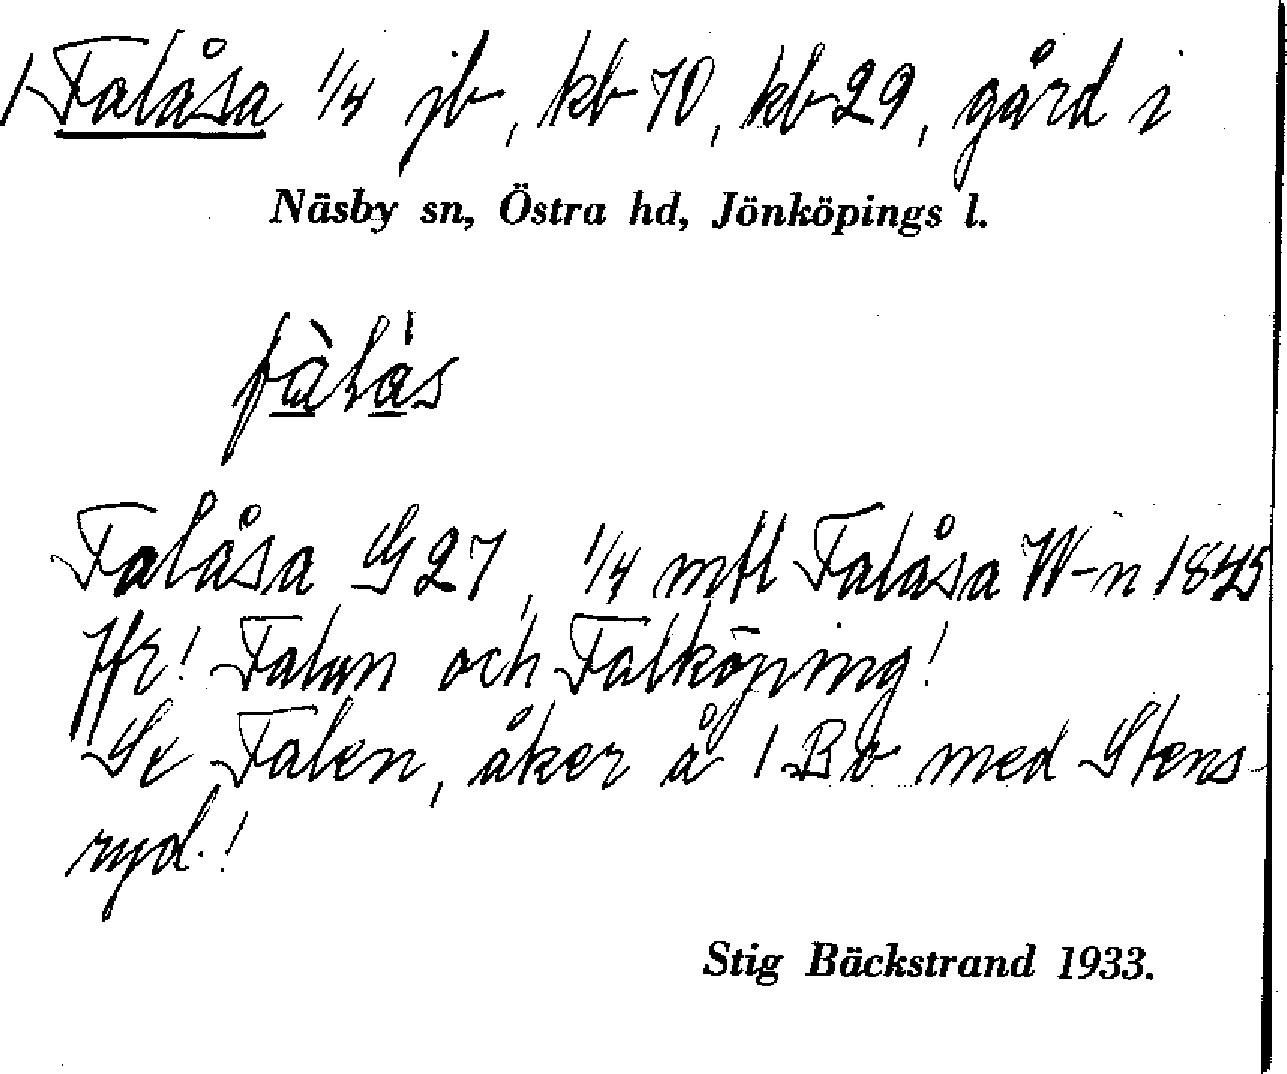 1 Falåsa 1/4 jb, kb 70, kb 29, gård i
Näsby sn, Östra hd, Jönköpings l.
fàlás
Falåsa G 27, 1/4 mtl Falåsa W-n 1845
Jfr! Falun och Falköping!
Se Falen, åker å 1 Bo med Stens-
ryd.!
Stig Bäckstrand 1933.